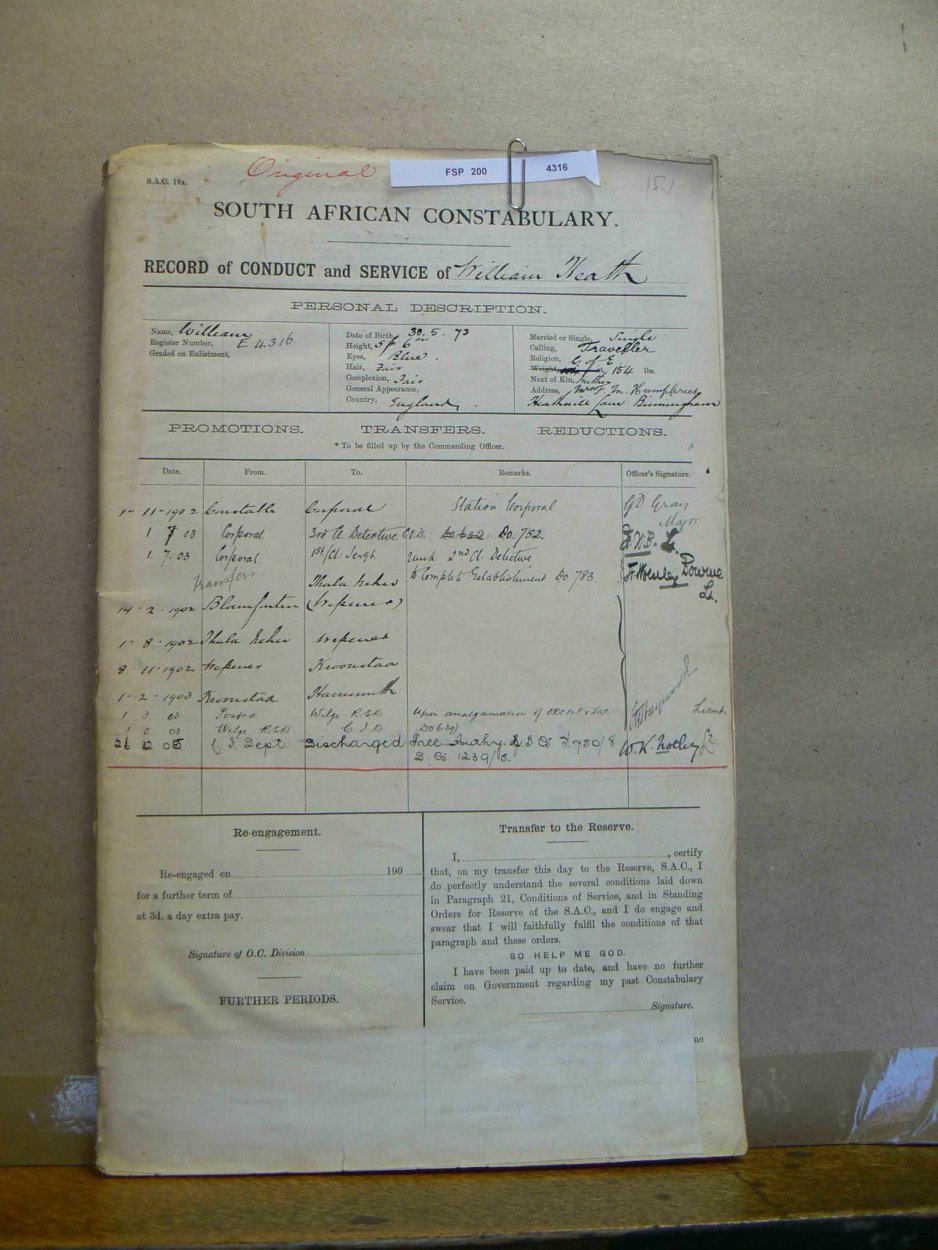 Original
FSP 200 4316
S.A.C. 19A.
SOUTH AFRICAN CONSTABULARY.
RECORD of CONDUCT and SERVICE of William Heath
PERSONAL DESCRIPTION.
Name, William
Register Number, E 4316
Graded on Enlistment,
Date of Birth, 30. 5. 73
Height, 5ft 6in
Eyes, Blue.
Hair, Fair
Complexion, Fair
General Appearance,
Country, England
Married or Single, Single
Calling, Traveller
Religion, C of E
Weight, 154 lbs.
Next of Kin, Mother
Address, M. Humphries
Heathmill Lane Birmingham
PROMOTIONS. TRANSFERS. REDUCTIONS.
* To be filled up by the Commanding Officer.
Date. From. To. Remarks. Officer's Signature.
1- 11- 1902 Constable Corporal Station Corporal GD Gray
Major
1 7 03 Corporal 3rd Cl Detective C.I.D. DO. 752.
1. 7. 03 Corporal 1st Cl. Sergt rank 2nd Cl Detective
Transfers to Complete Establishment DO. 783
Thaba Nchu
14- 2- 1902 Bloemfontein (Wepener)
1- 8- 1902 Thaba Nchu Wepener
8- 11- 1902 Wepener Kroonstad
1- 2- 1903 Kroonstad Harrismith
1 3 03 Posted Wilge R.S.D Upon amalgamation of
Lieut.
1 5 03 Wilge R.S.D C I D DO 639
26 12 05 C I Dept Discharged
D. O. 1239/5. W. K. Notley Lt.
Re-engagement.
Re-engaged on 190
for a further term of
at 3d. a day extra pay.
Signature of O.C. Division
FURTHER PERIODS.
Transfer to the Reserve.
I, , certify
that, on my transfer this day to the Reserve, S.A.C., I
do perfectly understand the several conditions laid down
in Paragraph 21, Conditions of Service, and in Standing
Orders for Reserve of the S.A.C., and I do engage and
swear that I will faithfully fulfil the conditions of that
paragraph and these orders.
SO HELP ME GOD.
I have been paid up to date, and have no further
claim on Government regarding my past Constabulary
Service.
Signature.
ne